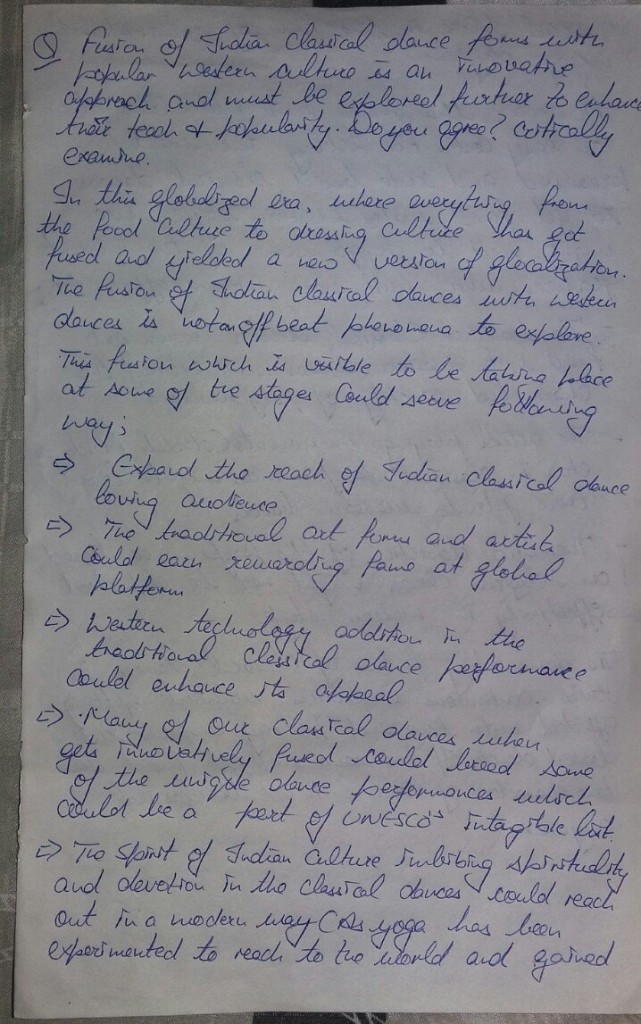 Q Fusion of Indian classical dance forms with
popular western culture is an innovative
approach and must be explored further to enhance
their reach & popularity. Do you agree? Critically
examine.
In this globalized era, where everything from
the food culture to dressing culture has got
fused and yielded a new version of glocalization.
The fusion of Indian classical dances with western
dances is not an offbeat phenomena to explore.
This fusion which is visible to be taking place
at some of the stages could serve following
way;
⇒ Expand the reach of Indian classical dance
loving audience
⇒ The traditional art forms and artists
could earn rewarding fame at global
platform
⇒ Western technology addition in the
traditional classical dance performance
could enhance its appeal
⇒ Many of our classical dances when
gets innovatively fused could breed some
of the unique dance performances which
could be a part of UNESCO's intangible list.
⇒ The spirit of Indian culture imbibing spirituality
and devotion in the classical dances could reach
out in a modern way (As yoga has been
experimented to reach to the world and gained